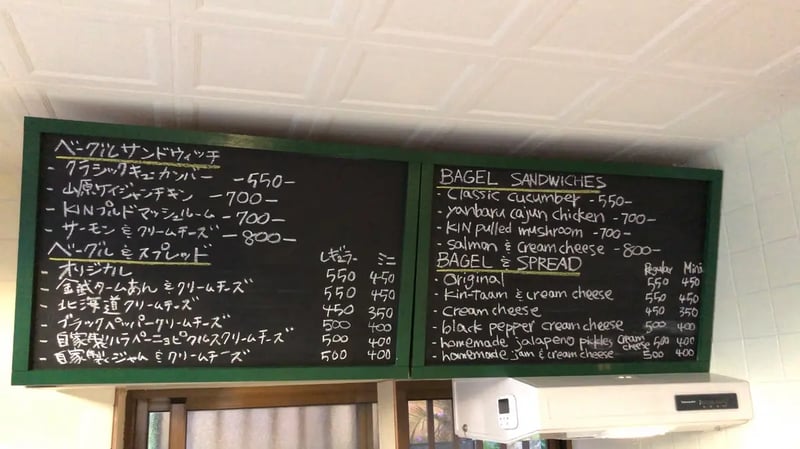 ベーグルサンドウィッチ
- クラシックキューカンバー -550-
- 山原ケイジャンチキン -700-
- KINプルドマッシュルーム -700-
- サーモン & クリームチーズ -800-
ベーグル & スプレッド
レギュラー ミニ
- オリジナル 550 450
- 金武タームあん & クリームチーズ 550 450
- 北海道クリームチーズ 450 350
- ブラックペッパークリームチーズ 500 400
- 自家製ハラペーニョピクルスクリームチーズ 500 400
- 自家製ジャム & クリームチーズ 500 400
BAGEL SANDWICHES
- Classic cucumber -550-
- yanbaru cajun chicken -700-
- KIN pulled mushroom -700-
- salmon & cream cheese -800-
BAGEL & SPREAD
Regular Mini
- Original 550 450
- Kin-Taam & cream cheese 550 450
- Cream cheese 450 350
- black pepper cream cheese 500 400
- homemade jalapeno pickles cream cheese 500 400
- homemade jam & cream cheese 500 400